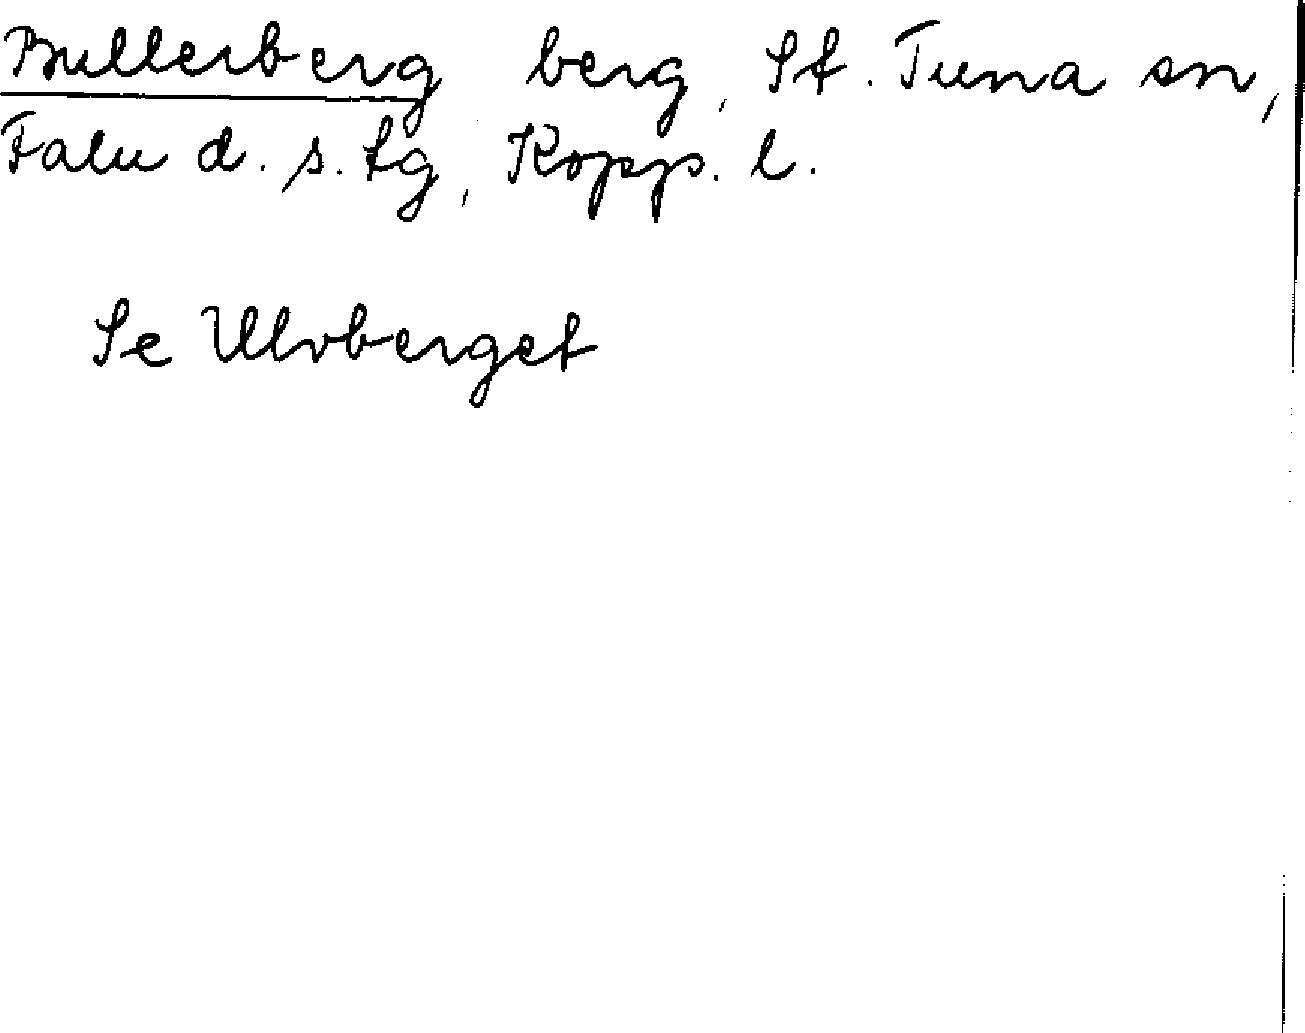 Bullerberg berg, St. Tuna sn,
Falu d. s. tg, Kopp. l.
Se Ulvberget